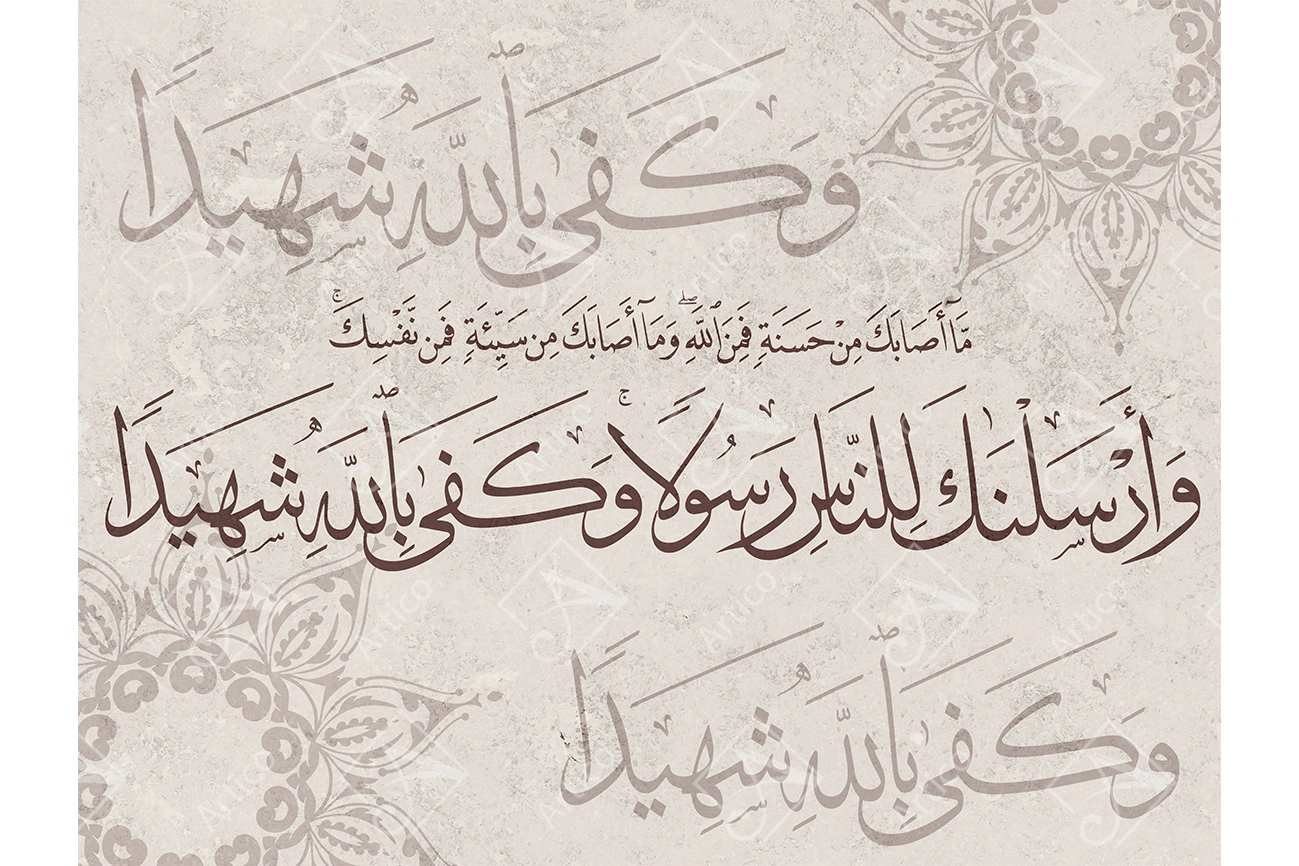 وَكَفَىٰ بِٱللَّهِ شَهِيدًا
مَّآ أَصَابَكَ مِنْ حَسَنَةٍ فَمِنَ ٱللَّهِ ۖ وَمَآ أَصَابَكَ مِن سَيِّئَةٍ فَمِن نَّفْسِكَ ۚ
وَأَرْسَلْنَٰكَ لِلنَّاسِ رَسُولًا ۚ وَكَفَىٰ بِٱللَّهِ شَهِيدًا
وَكَفَىٰ بِٱللَّهِ شَهِيدًا
Artico